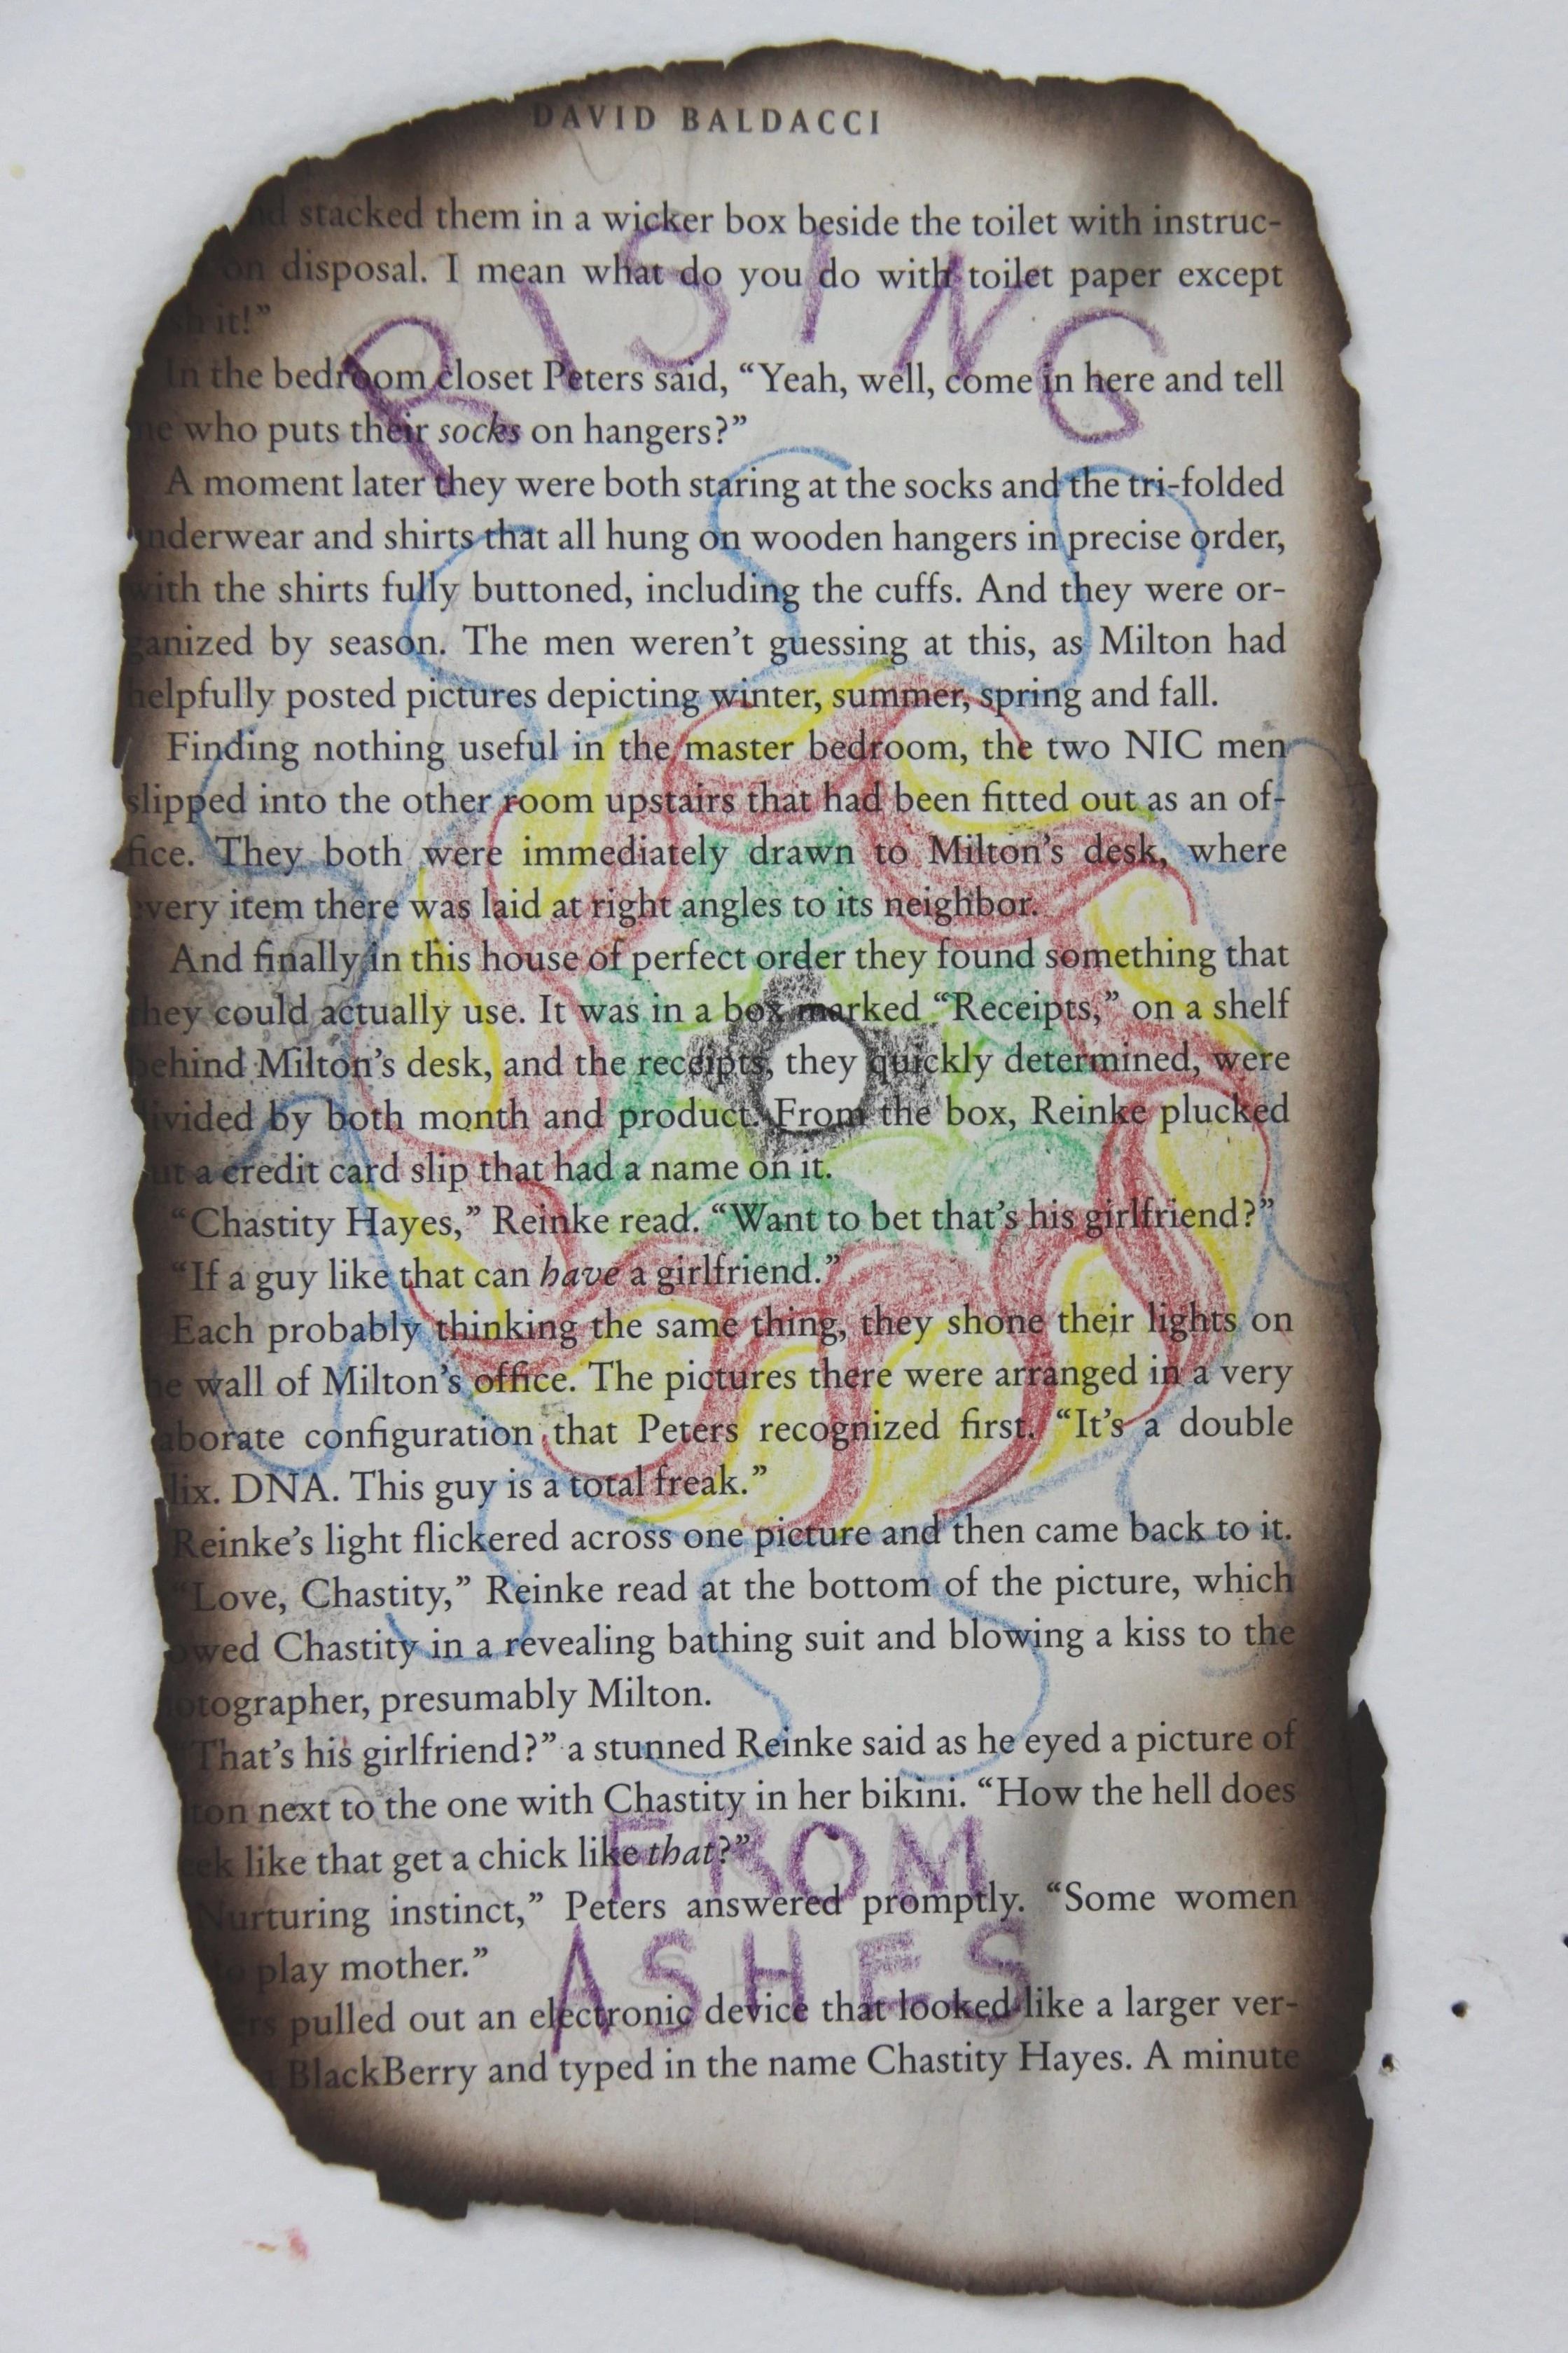 DAVID BALDACCI
stacked them in a wicker box beside the toilet with instruc-
on disposal. I mean what do you do with toilet paper except
it!”
RISING
In the bedroom closet Peters said, “Yeah, well, come in here and tell
who puts their socks on hangers?”
A moment later they were both staring at the socks and the tri-folded
underwear and shirts that all hung on wooden hangers in precise order,
with the shirts fully buttoned, including the cuffs. And they were or-
ganized by season. The men weren’t guessing at this, as Milton had
helpfully posted pictures depicting winter, summer, spring and fall.
Finding nothing useful in the master bedroom, the two NIC men
slipped into the other room upstairs that had been fitted out as an of-
fice. They both were immediately drawn to Milton’s desk, where
every item there was laid at right angles to its neighbor.
And finally in this house of perfect order they found something that
they could actually use. It was in a box marked “Receipts,” on a shelf
behind Milton’s desk, and the receipts, they quickly determined, were
divided by both month and product. From the box, Reinke plucked
out a credit card slip that had a name on it.
“Chastity Hayes,” Reinke read. “Want to bet that’s his girlfriend?”
“If a guy like that can have a girlfriend.”
Each probably thinking the same thing, they shone their lights on
wall of Milton’s office. The pictures there were arranged in a very
aborate configuration that Peters recognized first. “It’s a double
lix. DNA. This guy is a total freak.”
Reinke’s light flickered across one picture and then came back to it.
“Love, Chastity,” Reinke read at the bottom of the picture, which
owed Chastity in a revealing bathing suit and blowing a kiss to the
otographer, presumably Milton.
“That’s his girlfriend?” a stunned Reinke said as he eyed a picture of
ton next to the one with Chastity in her bikini. “How the hell does
ek like that get a chick like that?”
FROM
Nurturing instinct,” Peters answered promptly. “Some women
to play mother.”
ASHES
ers pulled out an electronic device that looked like a larger ver-
BlackBerry and typed in the name Chastity Hayes. A minute